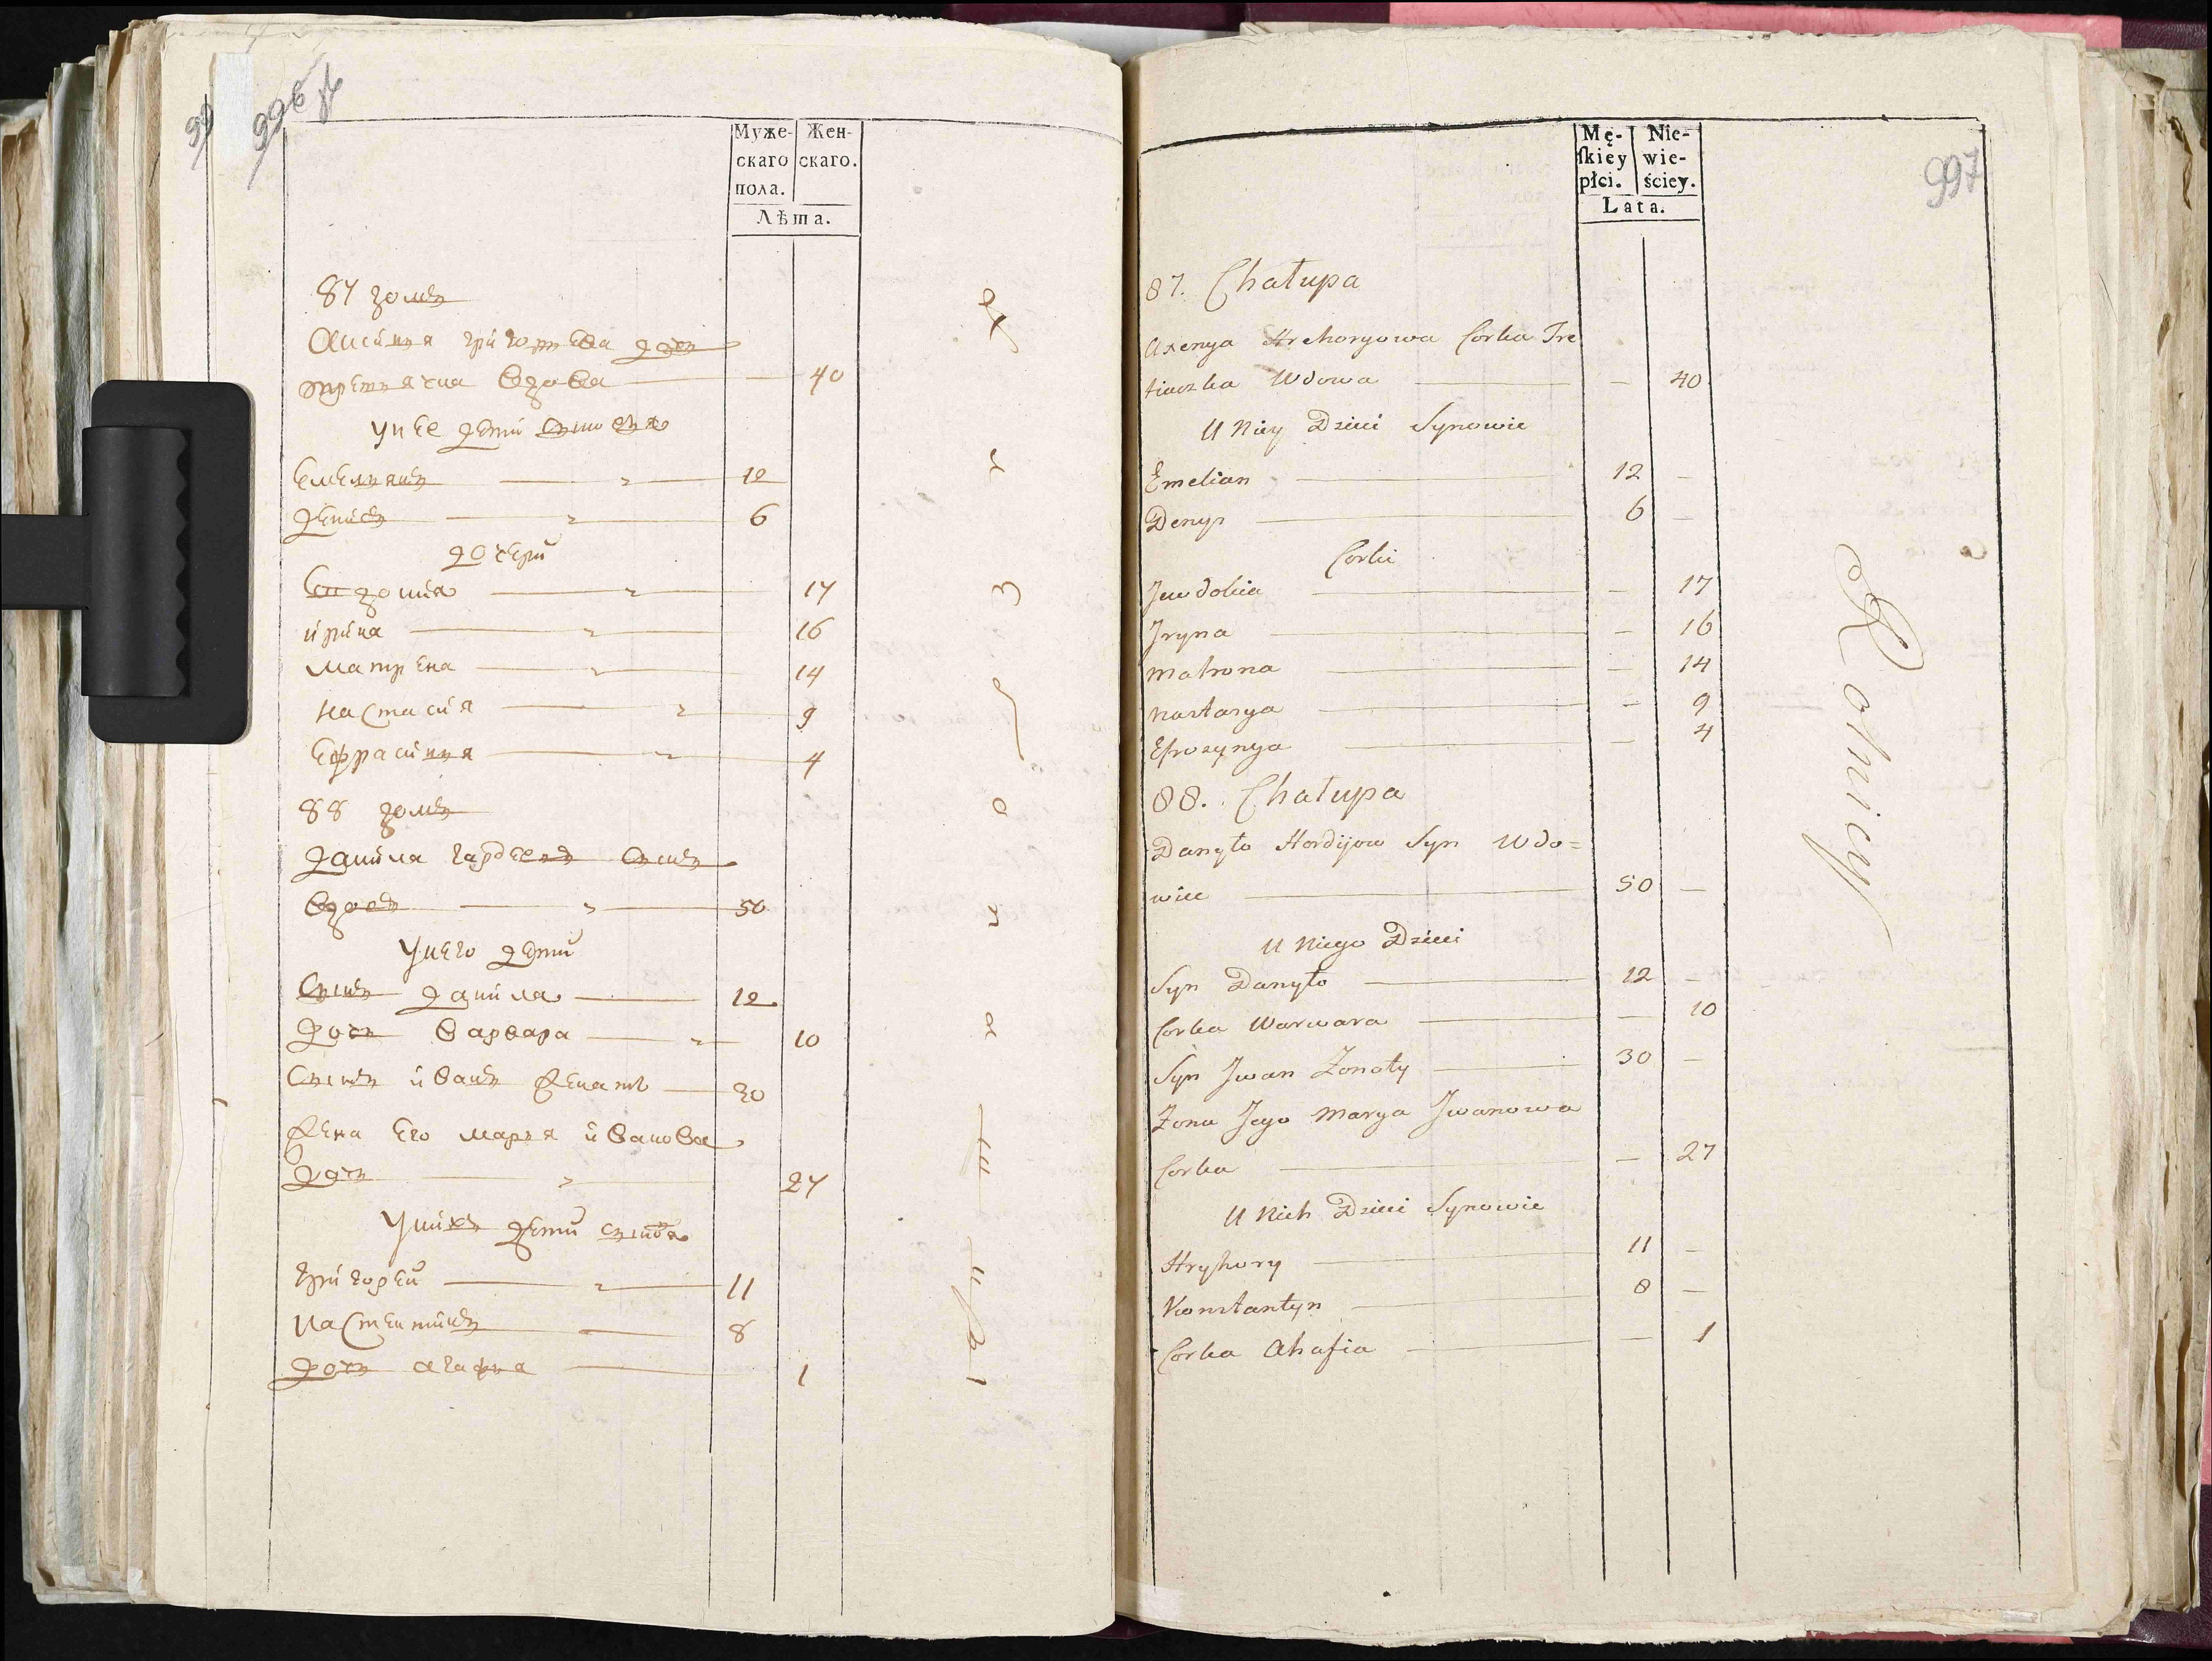 996
Муже- Жен-
скаго скаго.
пола.
Лѣта.
87 домъ
Аксинья григорьева дочь
третьячка вдова 40
у нее дети сыновья
Емельянъ 12
денисъ 6
дочери
Евдокия 17
ирина 16
матрена 14
настасия 9
Ефрасинья 4
88 домъ
данила гардеевъ сынъ
вдовъ 50
у него дети
сынъ данила 12
дочь варвара 10
сынъ иванъ женатъ 30
жена его марья иванова
дочь 27
у нихъ дети сыновья
григорей 11
кастентинъ 8
дочь агафья 1
997
Mę- Nie-
skiey wie-
płci. ściey.
Lata.
87. Chałupa
Axenya Hrehoryowa Corka Tre
tiaczka Wdowa — 40
U Niey Dzieci Synowie
Emelian 12 —
Denys 6 —
Corki
Jewdokia — 17
Jryna — 16
Matrona — 14
Nastasya — 9
Efrozynya — 4
88. Chałupa
Danyło Hordijow Syn Wdo=
wiec 50 —
U Niego Dzieci
Syn Danyło 12 —
Corka Warwara — 10
Syn Jwan Żonaty 30 —
Żona Jego Marya Jwanowa
Corka — 27
U Nich Dzieci Synowie
Hryhory 11 —
Konstantyn 8 —
Corka Ahafia — 1
Rolnicy